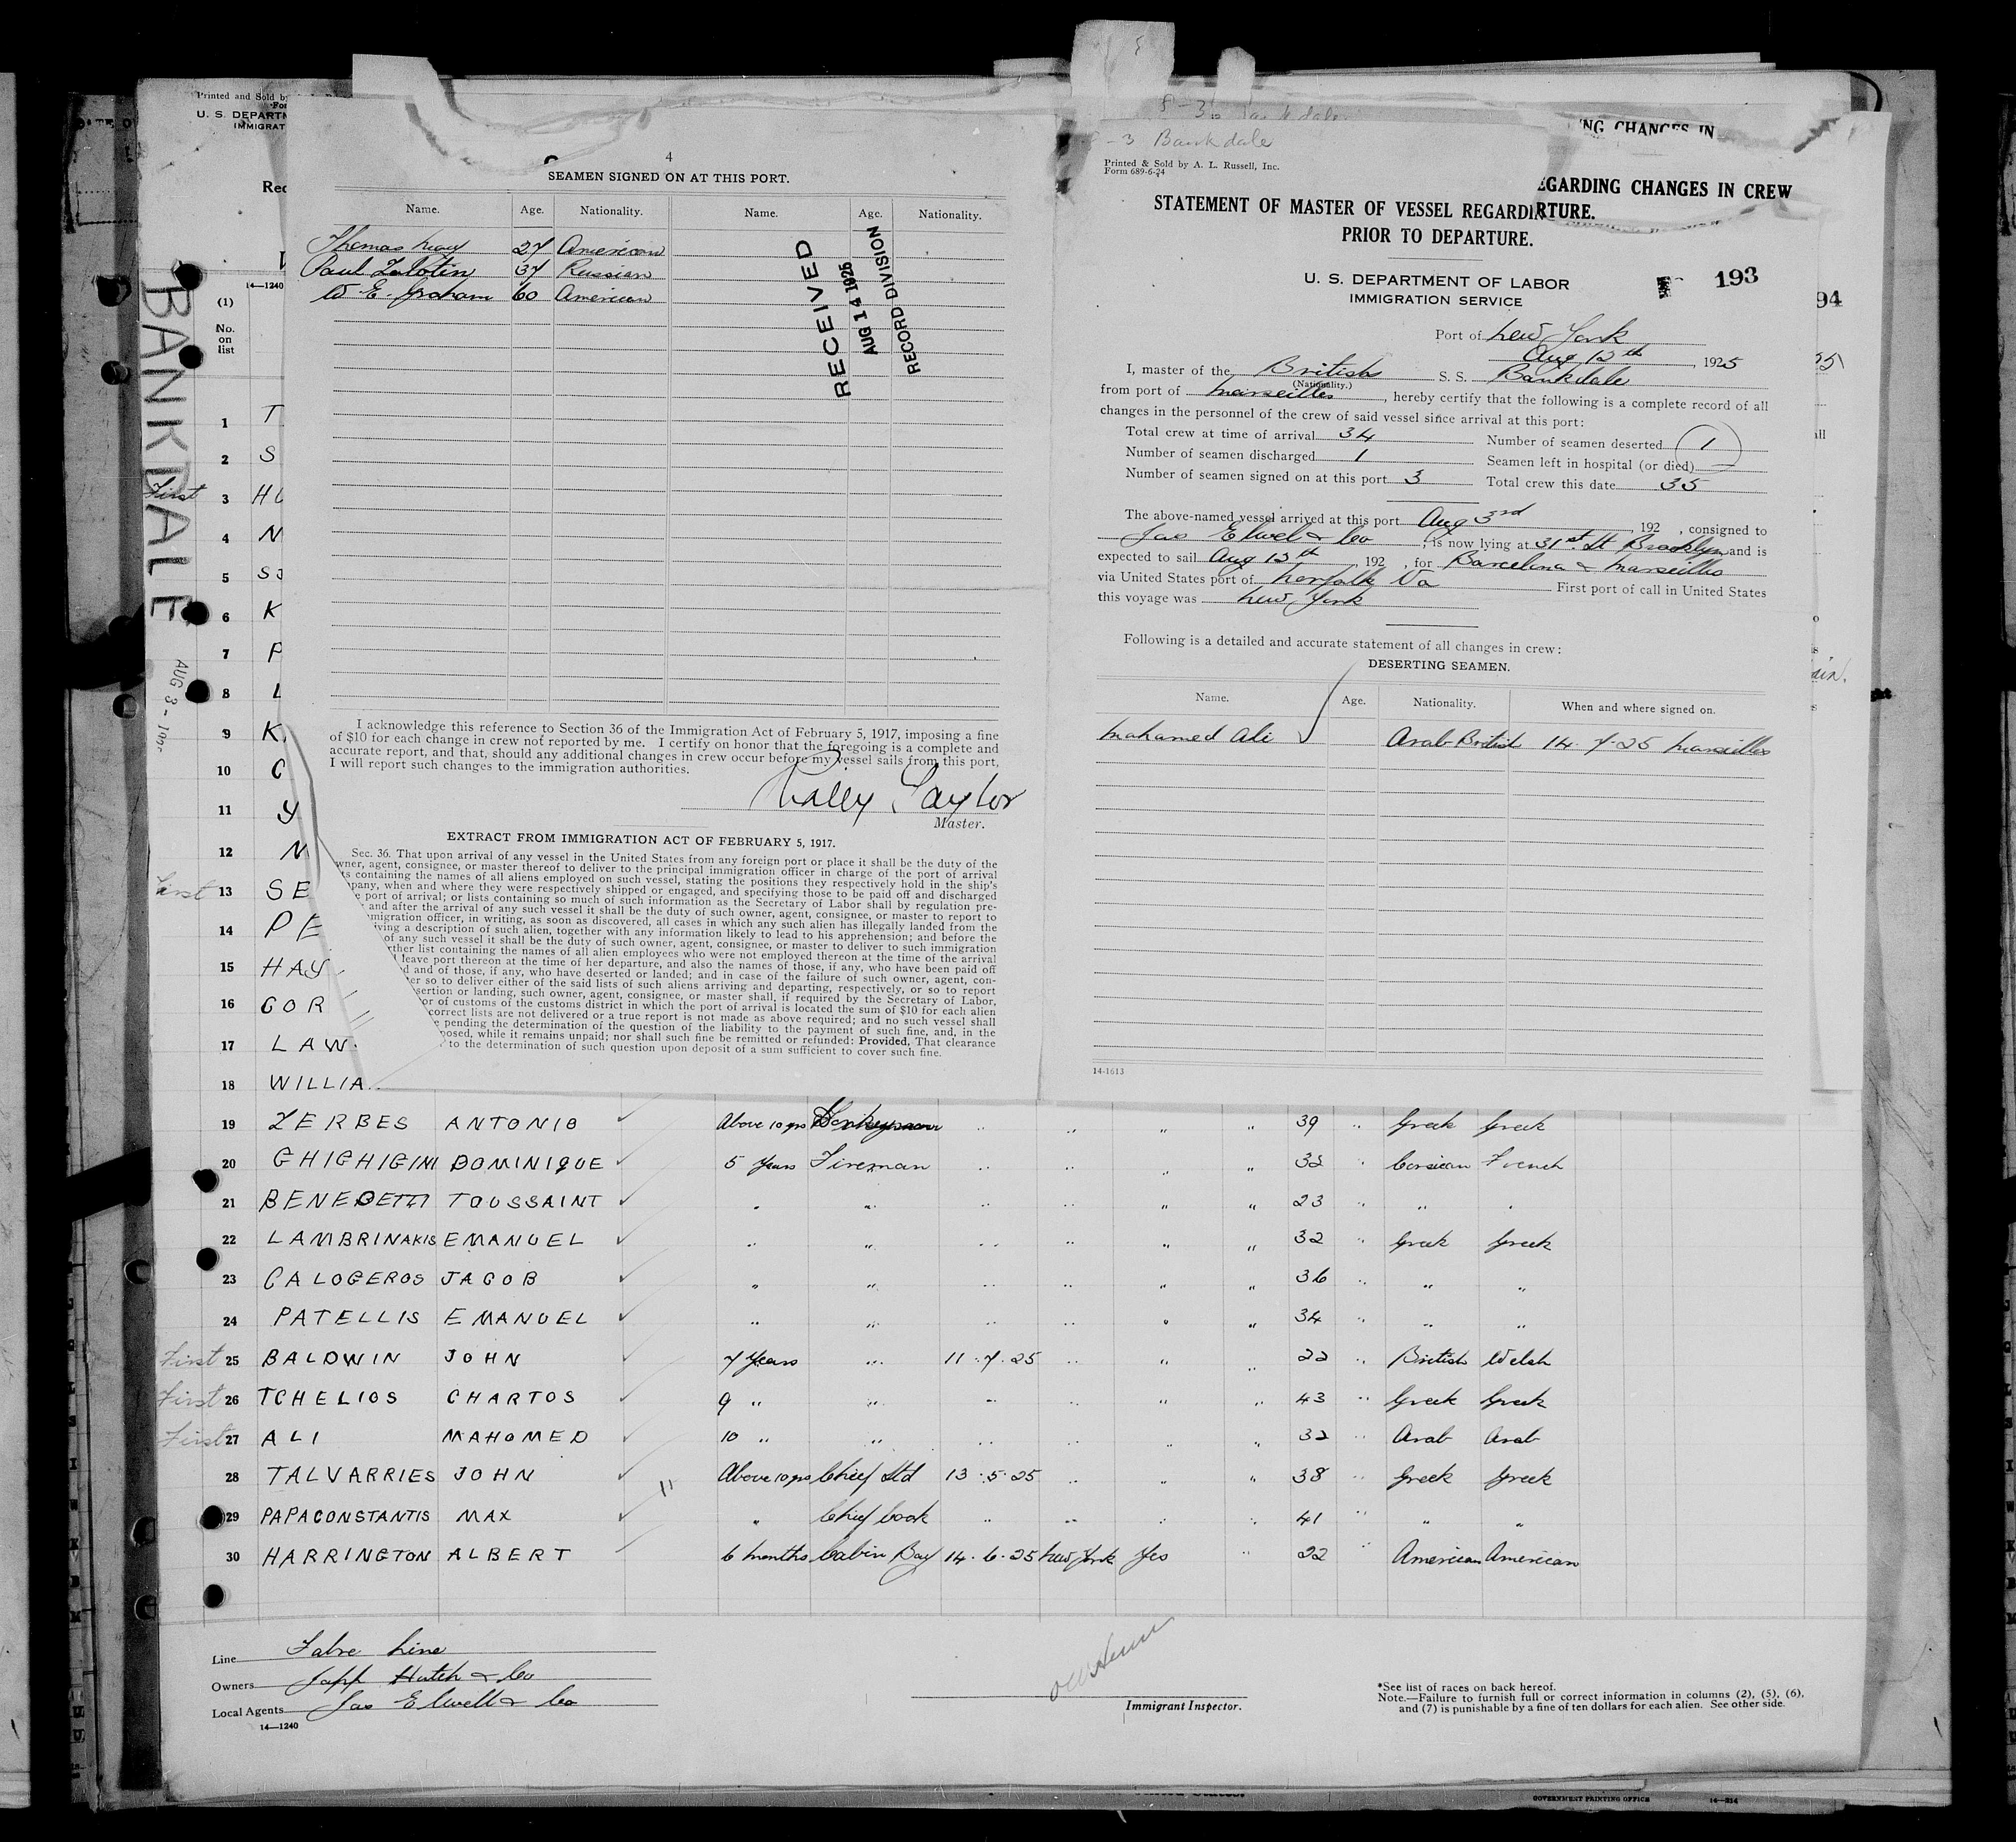 4
SEAMEN SIGNED ON AT THIS PORT.
Name. Age. Nationality. Name. Age. Nationality.
Thomas 27 American
Paul 37 Russian
W. E. Graham 60 American
RECEIVED
AUG 14 1925
RECORD DIVISION
I acknowledge this reference to Section 36 of the Immigration Act of February 5, 1917, imposing a fine
of $10 for each change in crew not reported by me. I certify on honor that the foregoing is a complete and
accurate report, and that, should any additional changes in crew occur before my vessel sails from this port,
I will report such changes to the immigration authorities.
Taylor
Master.
EXTRACT FROM IMMIGRATION ACT OF FEBRUARY 5, 1917.
Sec. 36. That upon arrival of any vessel in the United States from any foreign port or place it shall be the duty of the
wner, agent, consignee, or master thereof to deliver to the principal immigration officer in charge of the port of arrival
ts containing the names of all aliens employed on such vessel, stating the positions they respectively hold in the ship's
pany, when and where they were respectively shipped or engaged, and specifying those to be paid off and discharged
e port of arrival; or lists containing so much of such information as the Secretary of Labor shall by regulation pre-
and after the arrival of any such vessel it shall be the duty of such owner, agent, consignee, or master to report to
mmigration officer, in writing, as soon as discovered, all cases in which any such alien has illegally landed from the
iving a description of such alien, together with any information likely to lead to his apprehension; and before the
of any such vessel it shall be the duty of such owner, agent, consignee, or master to deliver to such immigration
rther list containing the names of all alien employees who were not employed thereon at the time of the arrival
l leave port thereon at the time of her departure, and also the names of those, if any, who have been paid off
d and of those, if any, who have deserted or landed; and in case of the failure of such owner, agent, con-
er so to deliver either of the said lists of such aliens arriving and departing, respectively, or so to report
sertion or landing, such owner, agent, consignee, or master shall, if required by the Secretary of Labor,
or of customs of the customs district in which the port of arrival is located the sum of $10 for each alien
correct lists are not delivered or a true report is not made as above required; and no such vessel shall
e pending the determination of the question of the liability to the payment of such fine, and, in the
posed, while it remains unpaid; nor shall such fine be remitted or refunded: Provided, That clearance
to the determination of such question upon deposit of a sum sufficient to cover such fine.
-3 Bankdale
Printed & Sold by A. L. Russell, Inc.
Form 689-6-24
NG CHANGES IN
EGARDING CHANGES IN CREW
RTURE.
STATEMENT OF MASTER OF VESSEL REGARDI
PRIOR TO DEPARTURE.
U. S. DEPARTMENT OF LABOR
IMMIGRATION SERVICE
193
94
Port of New York
Aug 12th, 1925
I, master of the British S. S. Bankdale
(Nationality.)
from port of Marseilles, hereby certify that the following is a complete record of all
changes in the personnel of the crew of said vessel since arrival at this port:
Total crew at time of arrival 34 Number of seamen deserted 1
Number of seamen discharged 1 Seamen left in hospital (or died) —
Number of seamen signed on at this port 3 Total crew this date 35
The above-named vessel arrived at this port Aug 3rd, 192 , consigned to
Jas Elwell & Co, is now lying at 31st. St Brooklyn and is
expected to sail Aug 12th, 192 , for Barcelona & Marseilles
via United States port of Norfolk Va First port of call in United States
this voyage was New York
Following is a detailed and accurate statement of all changes in crew:
DESERTING SEAMEN.
Name. Age. Nationality. When and where signed on.
Mahamed Ali Arab British 14.7.25 Marseilles
14-1613
Printed and Sold by
U. S. DEPARTM
IMMIGRAT
Rec
14—1240
BANKDALE
AUG 3-
(1)
No. on list
1 T
2 S
First 3 HU
4 N
5 S
6 K
7 P
8 L
9 K
10 C
11 Y
12 N
First 13 SE
14 PE
15 HAY
16 GOR
17 LAW
18 WILLIA
19 ZERBES ANTONIO Above 10 yrs Donkeyman " " " " 39 " Greek Greek
20 GHIGHIGINI DOMINIQUE 5 Years Fireman " " " " 32 " Corsican French
21 BENEDETTI TOUSSAINT " " " " " " 23 " " "
22 LAMBRINAKIS EMANUEL " " " " " " 32 " Greek Greek
23 CALOGEROS JACOB " " " " " " 36 " " "
24 PATELLIS EMANUEL " " " " " " 34 " " "
First 25 BALDWIN JOHN 7 Years " 11.7.25 " " " 22 " British Welsh
First 26 TCHELIOS CHARTOS 9 " " " " " " 43 " Greek Greek
First 27 ALI MAHOMED 10 " " " " " " 32 " Arab Arab
28 TALVARRIES JOHN Above 10 yrs Chief Std 13.5.25 " " " 38 " Greek Greek
29 PAPACONSTANTIS MAX " Chief Cook " " " " 41 " " "
30 HARRINGTON ALBERT 6 months Cabin Boy 14.6.25 New York Yes " 22 " American American
Line Fabre Line
Owners Japp Hatch & Co
Local Agents Jas Elwell & Co
14—1240
Immigrant Inspector.
*See list of races on back hereof.
Note.—Failure to furnish full or correct information in columns (2), (5), (6),
and (7) is punishable by a fine of ten dollars for each alien. See other side.
GOVERNMENT PRINTING OFFICE